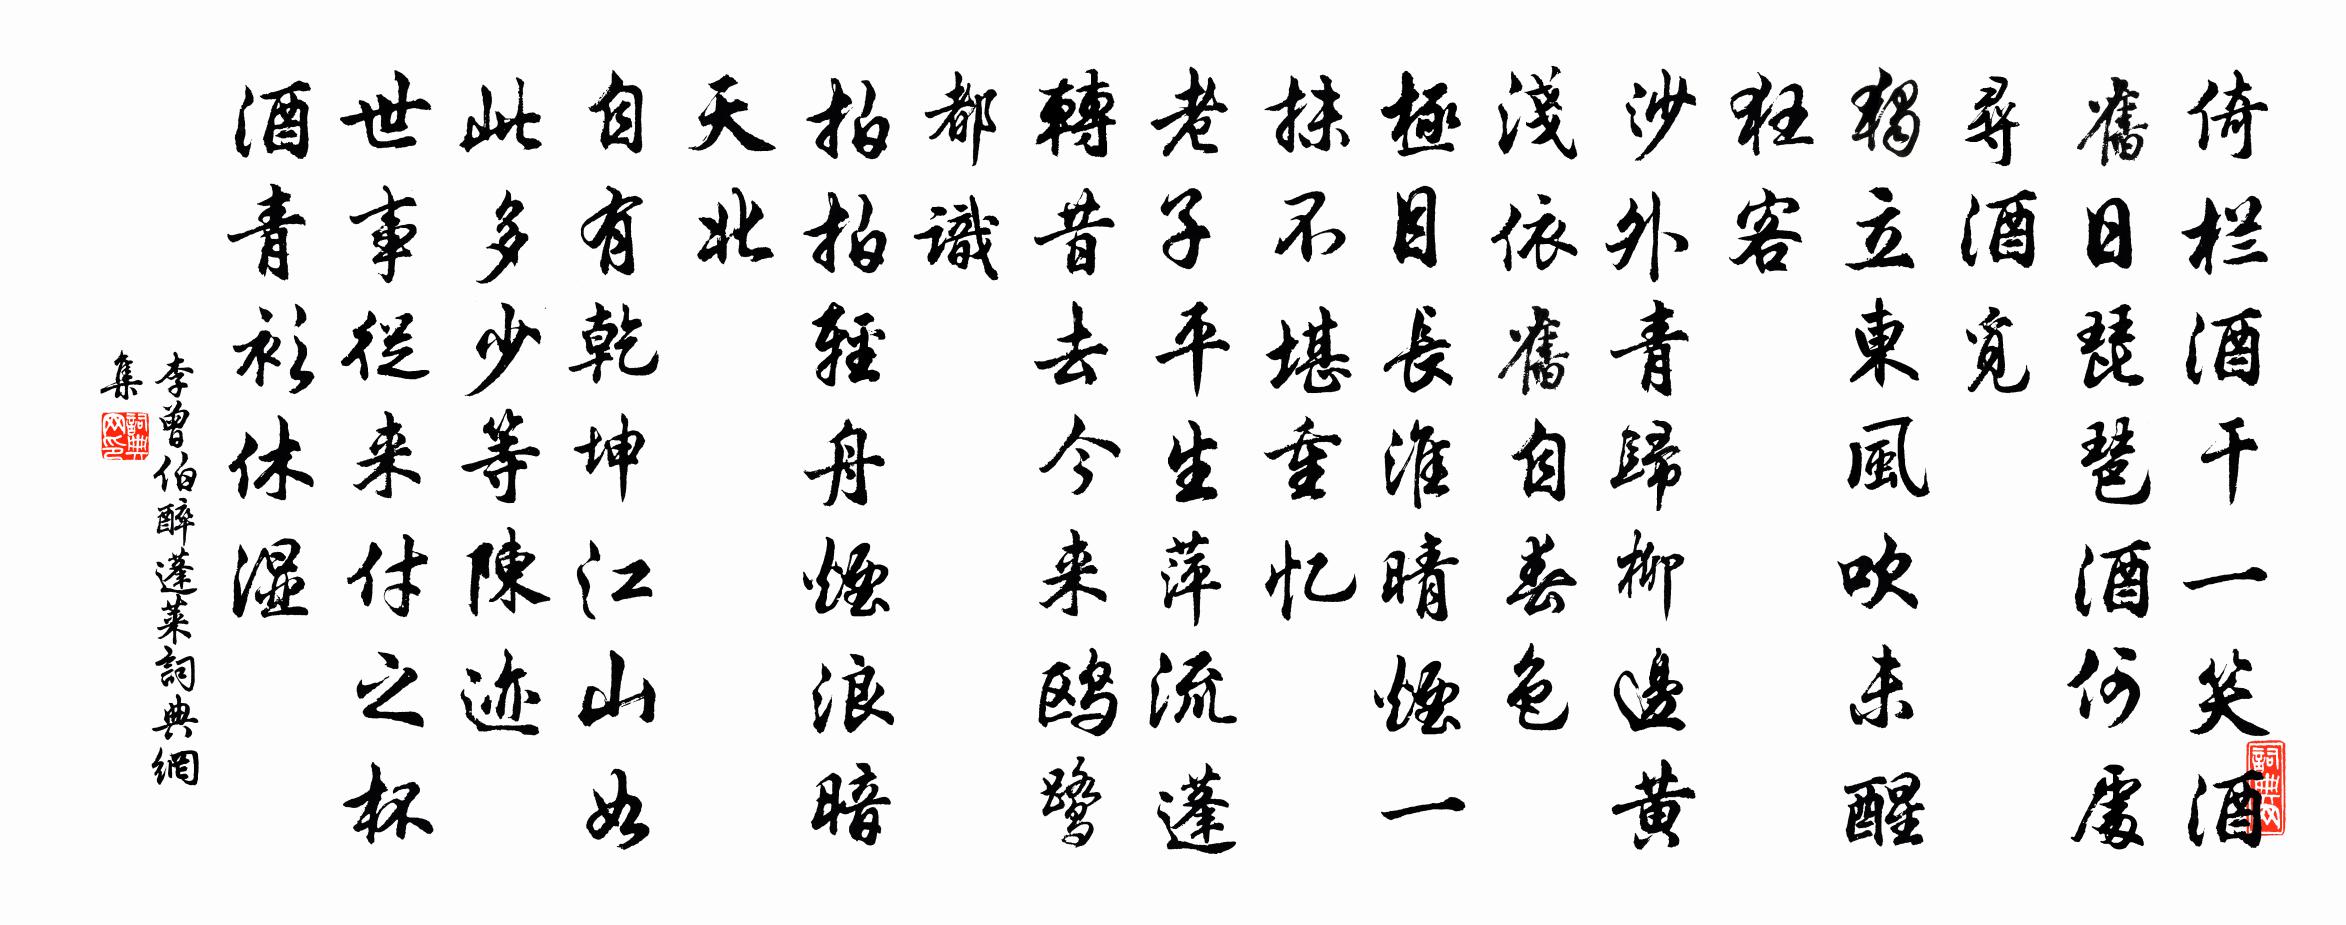 倚栏酒干一笑酒
舊日琵琶酒何處
尋酒覓
獨立東風吹未醒
狂客
沙外青歸柳邊黄
淺依舊自春色
極目長淮晴煙一
抹不堪重忆
老子平生萍流蓬
轉昔去今来鸥鹭
都識
拍拍輕舟煙浪暗
天北
自有乾坤江山如
此多少等陳迹
世事從来付之杯
酒青衫休濕
李曾伯醉蓬萊詞典網
集
詞典网印
詞典网